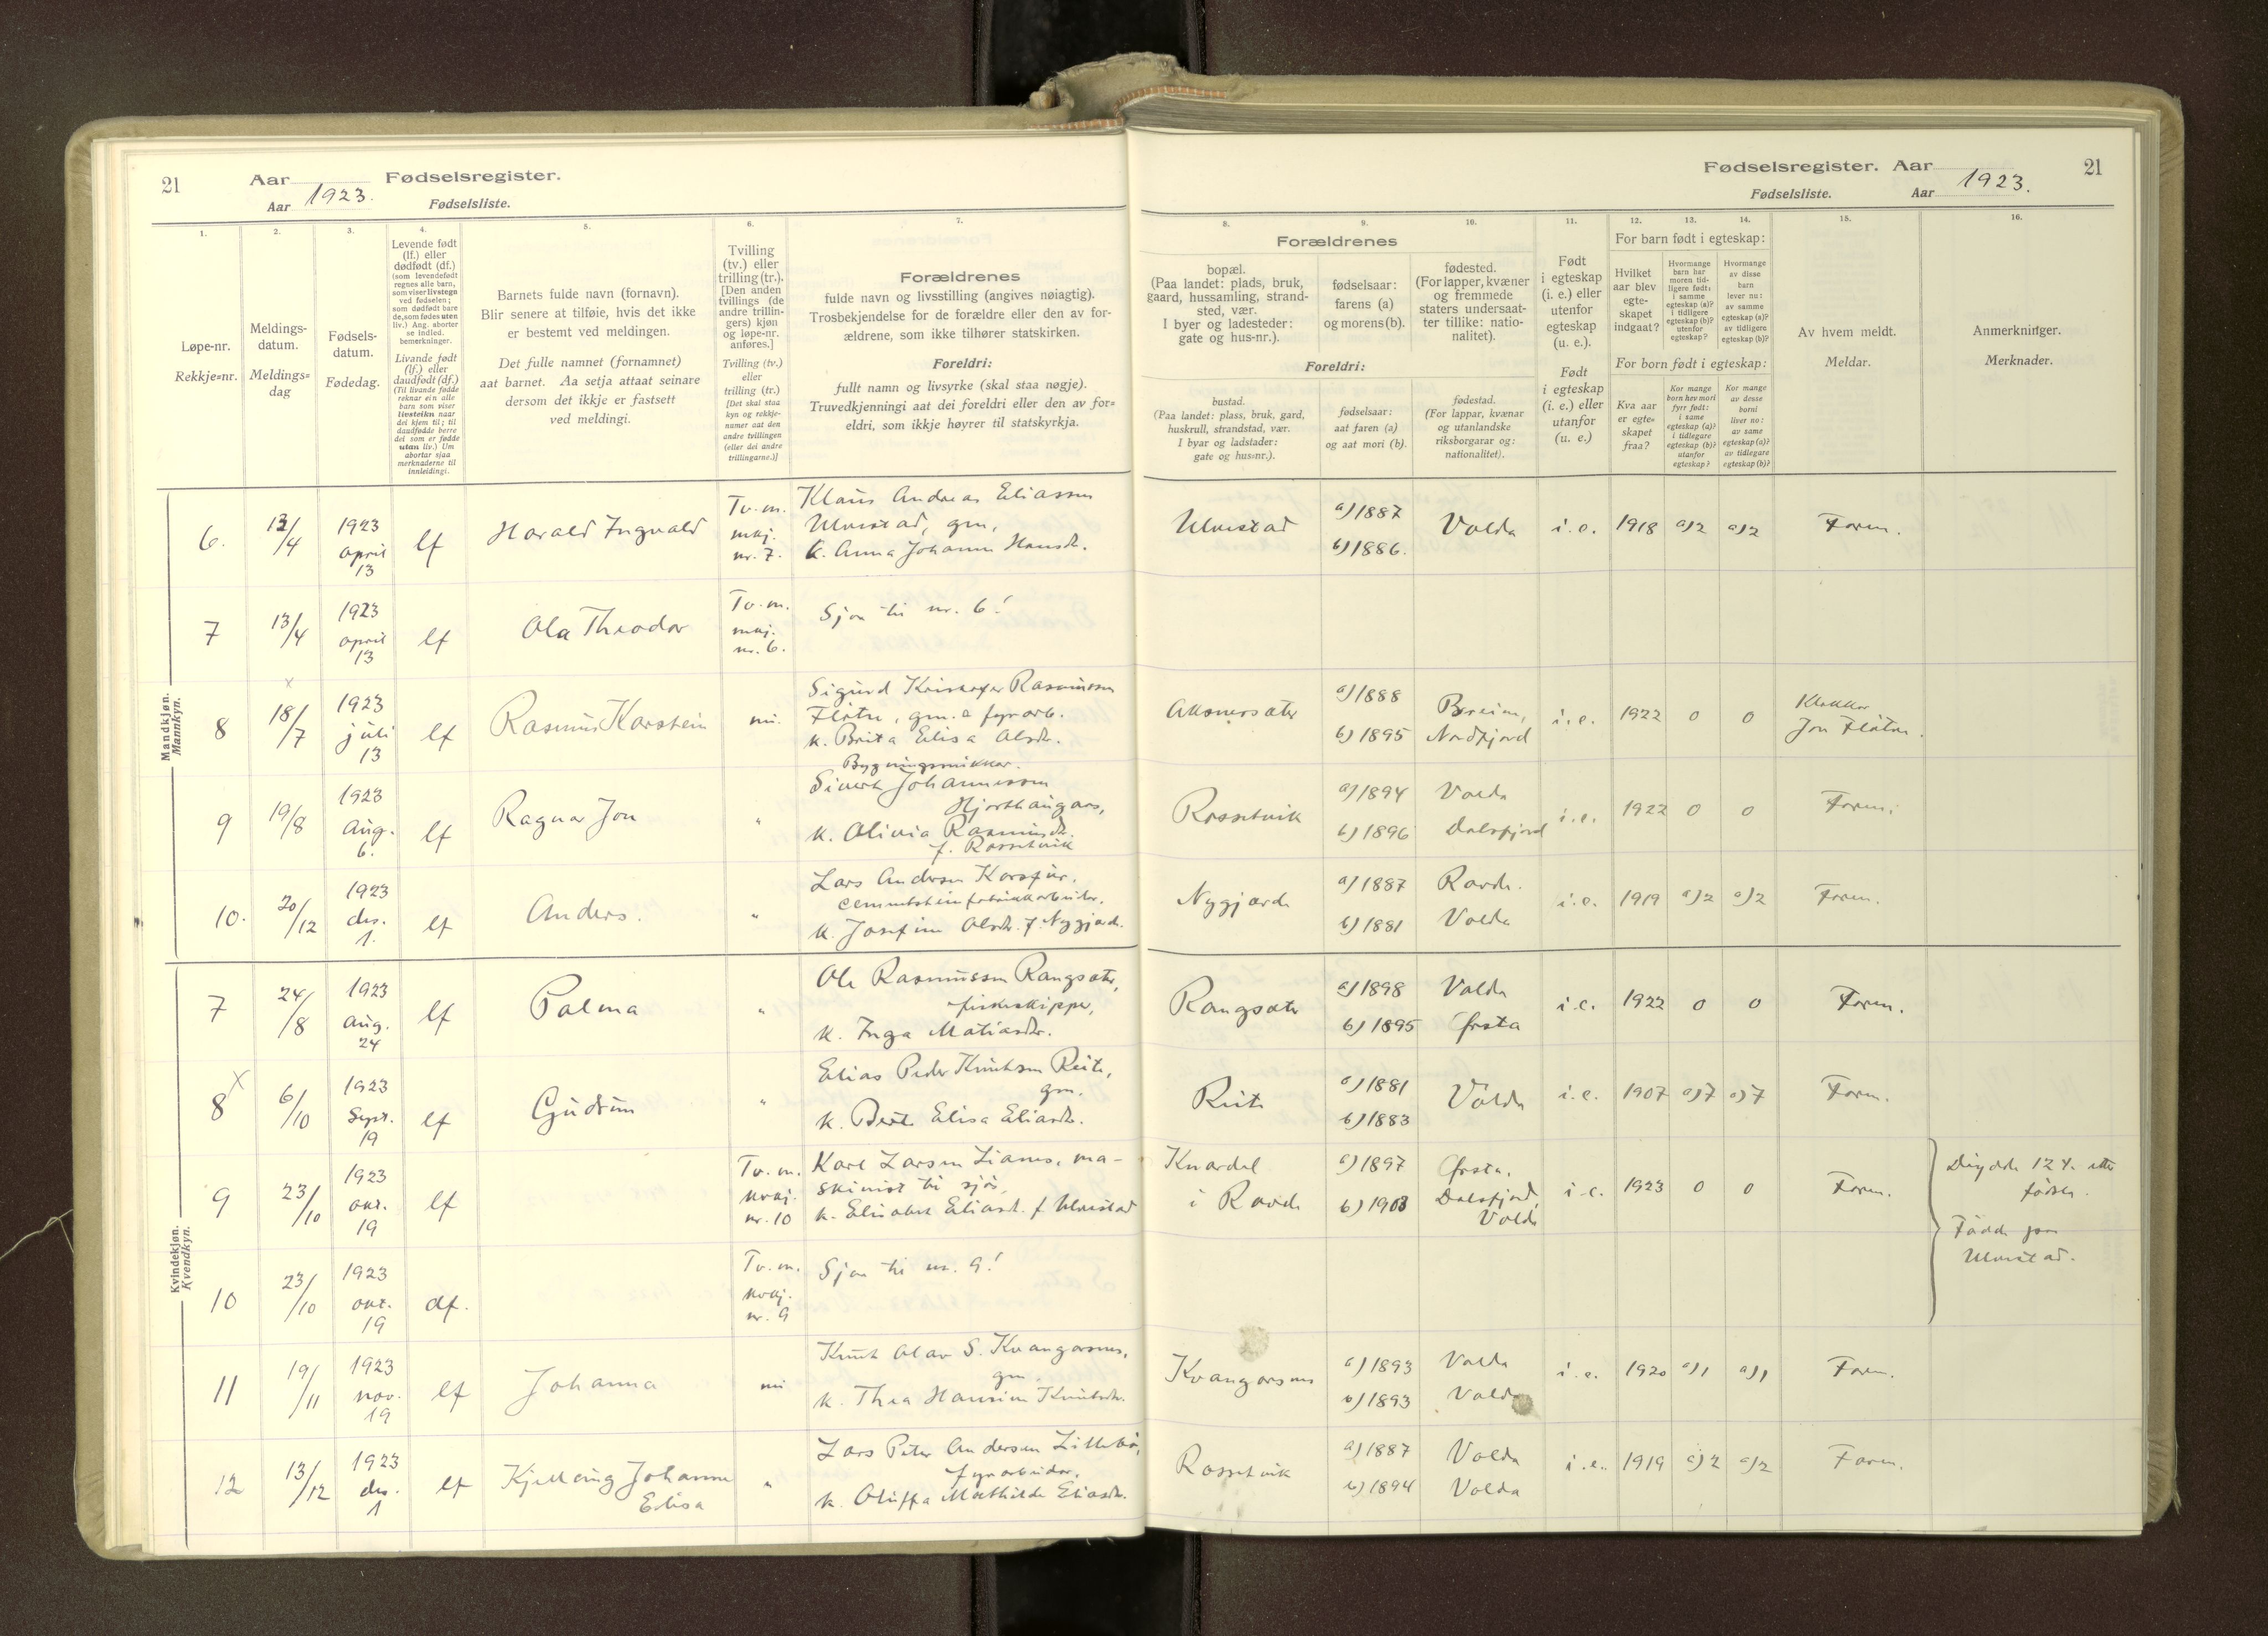 21 Aar Fødselsregister.
Aar 1923. Fødselsliste.
1. 2. 3. 4. 5. 6. 7.
Løpe-nr.
Rekkje=nr.
Meldings-
datum.
Meldings=
dag
Fødsels-
datum.
Fødedag.
Levende født
(lf.) eller
dødfødt (df.)
(som levendefødt
regnes alle barn,
som viser livstegn
ved fødselen;
som dødfødt bare
de, som fødes uten
liv.) Ang. aborter
se indled.
bemerkninger.
Livande født
(lf.) eller
daudfødt (df.)
(Til livande fødde
reknar ein alle
barn som viser
livsteikn naar
dei kjem til; til
daudfødde berre
dei som er fødde
utan liv.) Um
abortar sjaa
merknaderne til
innleidingi.
Barnets fulde navn (fornavn).
Blir senere at tilføie, hvis det ikke
er bestemt ved meldingen.
Det fulle namnet (fornamnet)
aat barnet. Aa setja attaat seinare
dersom det ikkje er fastsett
ved meldingi.
Tvilling
(tv.) eller
trilling (tr.).
[Den anden
tvillings (de
andre trillin-
gers) kjøn
og løpe-nr.
anføres.]
Tvilling (tv.)
eller
trilling (tr.)
[Det skal staa
kyn og rekkje-
numer aat den
andre tvillingen
(eller dei andre
trillingarne.)]
Forældrenes
fulde navn og livsstilling (angives nøiagtig).
Trosbekjendelse for de forældre eller den av for-
ældrene, som ikke tilhører statskirken.
Foreldri:
fullt namn og livsyrke (skal staa nøgje).
Truvedkjenningi aat dei foreldri eller den av for=
eldri, som ikkje høyrer til statskyrkja.
Mandkjøn.
Mannkyn.
6. 13/4 1923 april 13 lf Harald Ingvald Tv. m. nr. 7.
Klaus Andreas Eliassen
Ulvestad, gm,
k. Anna Johanna Hansdr.
7 13/4 1923 april 13 lf Ola Theodor Tv. m. nr. 6.
Sjaa til nr. 6!
8 18/7 1923 juli 13 lf Rasmus Karstein
Sigurd Rasmussen
Flåtn, gm. a fyrarb.
k. Brita Elisa Olsdr.
9 19/8 1923 Aug. 6. lf Ragnar Jon "
Bygningssnikkar.
Sivert Johannessen
Hjorthaugars,
k. Olivia Rasmusdr.
f. Rossetvik
10. 20/12 1923 des. 1. lf Anders. "
Lars Andersen
k. Josefine Olsdr. f. Nygjærde
Kvindekjøn.
Kvendkyn.
7 24/8 1923 Aug. 24 lf Palma "
Ole Rasmussen Rangsæter,
fiskeskipper,
k. Inga Matiasdr.
8 x 6/10 1923 Sept. 19 lf Gudrun "
Elias Peder Knutsen Reite,
gm.
k. Berte Elisa Eliasdr.
9 23/10 1923 okt. 19 lf Tv. m. kvkj. nr. 10
Karl Larsen Lianes, ma-
skinist til sjøs,
k. Elisabet Eliasd. f Ulvestad
10 23/10 1923 okt. 19 df. Tv. m. kvkj. nr. 9
Sjaa til nr. 9!
11 19/11 1923 nov. 19 lf Johanna
Knut Olav S. Kvangarsnes,
gm.
k. Thea Hansine Knutsdr.
12 13/12 1923 des. 1 lf Kjellaug Johanne
Elisa "
Lars Peter Andersen Lillebø,
fyrarbeider,
k. Oluffa Mathilde Eliasdr.
Fødselsregister. Aar 21
Fødselsliste. Aar 1923.
8. 9. 10. 11. 12. 13. 14. 15. 16.
Forældrenes
bopæl.
(Paa landet: plads, bruk,
gaard, hussamling, strand-
sted, vær.
I byer og ladesteder:
gate og hus-nr.).
fødselsaar:
farens (a)
og morens (b).
fødested.
(For lapper, kvæner
og fremmede
staters undersaat-
ter tillike: natio-
nalitet).
Foreldri:
bustad.
(Paa landet: plass, bruk, gard,
huskrull, strandstad, vær.
I byar og ladstader:
gate og hus=nr.).
fødselsaar:
aat faren (a)
og aat mori (b).
fødestad.
(For lappar, kvænar
og utanlandske
riksborgarar og:
nationalitet).
Født
i egteskap
(i. e.) eller
utenfor
egteskap
(u. e.).
Født
i egteskap
(i. e.) eller
utanfor
(u. e.)
For barn født i egteskap:
Hvilket
aar blev
egte-
skapet
indgaat?
Hvormange
barn har
moren tid-
ligere født:
i samme
egteskap (a)?
i tidligere
egteskap (b)?
utenfor
egteskap?
Hvormange
av disse
barn
lever nu:
av samme
egteskap (a)?
av tidligere
egteskap (b)?
For born født i egteskap:
Kva aar
er egte=
skapet
fraa?
Kor mange
born hev mori
fyrr født:
i same
egteskap (a)?
i tidlegare
egteskap (b)?
utanfor
egteskap?
Kor mange
av desse
borni
liver no:
av same
egteskap (a)?
av tidlegare
egteskap (b)?
Av hvem meldt.
Meldar.
Anmerkninger.
Merknader.
Ulvestad a) 1887 b) 1886. Volda i. e. 1918 a) 2 a) 2 Faren.
Aksnersæter a) 1888 b) 1895 Breim, Nordfjord i. e. 1922 0 0 Klokkar
Jon Flåtn.
Rossetvik a) 1894 b) 1896 Volda Dalsfjord i. e. 1922 0 0 Faren.
Nygjærde a) 1887 b) 1881 Volda i. e. 1919 a) 2 a) 2 Faren.
Rangsæter a) 1898 b) 1895 Volda Ørsta i. e. 1922 0 0 Faren.
Reite a) 1881 b) 1883 Volda i. e. 1907 a) 7 a) 7 Faren.
i a) 1897 b) 1903 Ørsta. Dalsfjord, Volda i. e. 1923 0 0 Faren.
12 t. etter
fødsel.
Fødde paa
Ulvestad.
Kvangarsnes a) 1893 b) 1893 Volda Volda i. e. 1920 a) 1 a) 1 Faren.
Rossetvik a) 1887 b) 1894 Volda Volda i. e. 1919 a) 2 a) 2 Faren.